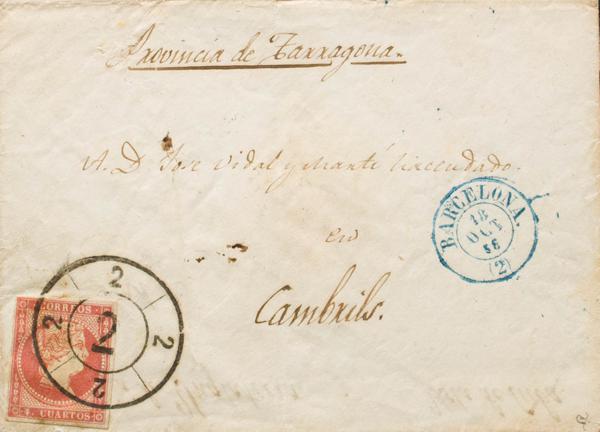 Provincia de Tarragona.
A. D Jose Vidal y Martí hacendado.
en
Cambrils.
BARCELONA.
18
OCT
56
(2)
2
2
2
2
2
CORREOS
4. CUARTOS